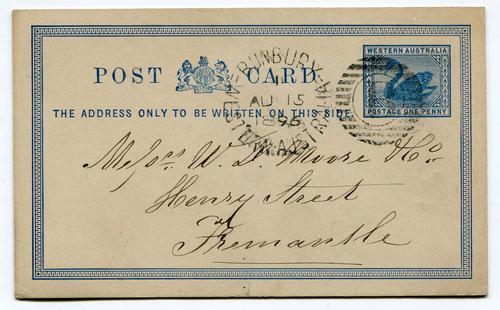 WESTERN AUSTRALIA
POST CARD
POSTAGE ONE PENNY
THE ADDRESS ONLY TO BE WRITTEN ON THIS SIDE.
BUNBURY
AU 15
95
W.A
Messrs W. D. Moore & Co
Henry Street
Fremantle